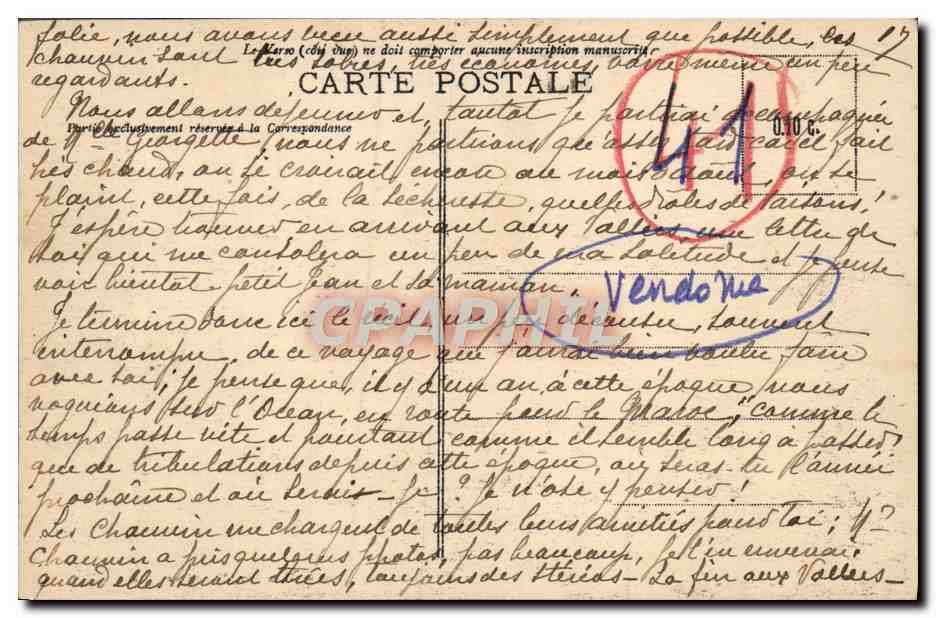 folie, nous avons vécu aussi simplement que possible, les 17
Le Verso (côté vue) ne doit comporter aucune inscription manuscrite
Chauvin sont très sobres, très économes, voire même un peu
regardants.
CARTE POSTALE
Nous allons déjeuner et, tantôt je partirai accompagnée
Partie exclusivement réservée à la Correspondance
0.10 C.
41
de Mlle Georgette, nous ne partirons qu'assez tard car il fait
très chaud, on se croirait encore au mois d'août, on se
plaint, cette fois, de la sécheresse, quelles drôles de saisons!
J'espère trouver en arrivant aux Valliers, une lettre de
toi qui me consolera un peu de ma solitude et je pense
voir bientôt petit Jean et sa maman.
Vendome
CPAPHIL
Je termine donc ici le récit, un peu décousu, souvent
interrompu, de ce voyage que j'aurai bien voulu faire
avec toi; je pense que, il y a un an, à cette époque, nous
voguions sur l'Océan, en route pour le Maroc, "comme le
temps passe vite et pourtant comme il semble long à passer"
que de tribulations depuis cette époque, où seras-tu l'année
prochaine et où serais-je? Je n'ose y penser!
Les Chauvin me chargent de toutes leurs amitiés pour toi; Mr
Chauvin a pris quelques photos, pas beaucoup, je t'en enverrai
quand elles seront tirées, toujours des stéréos - La fin aux Valliers -